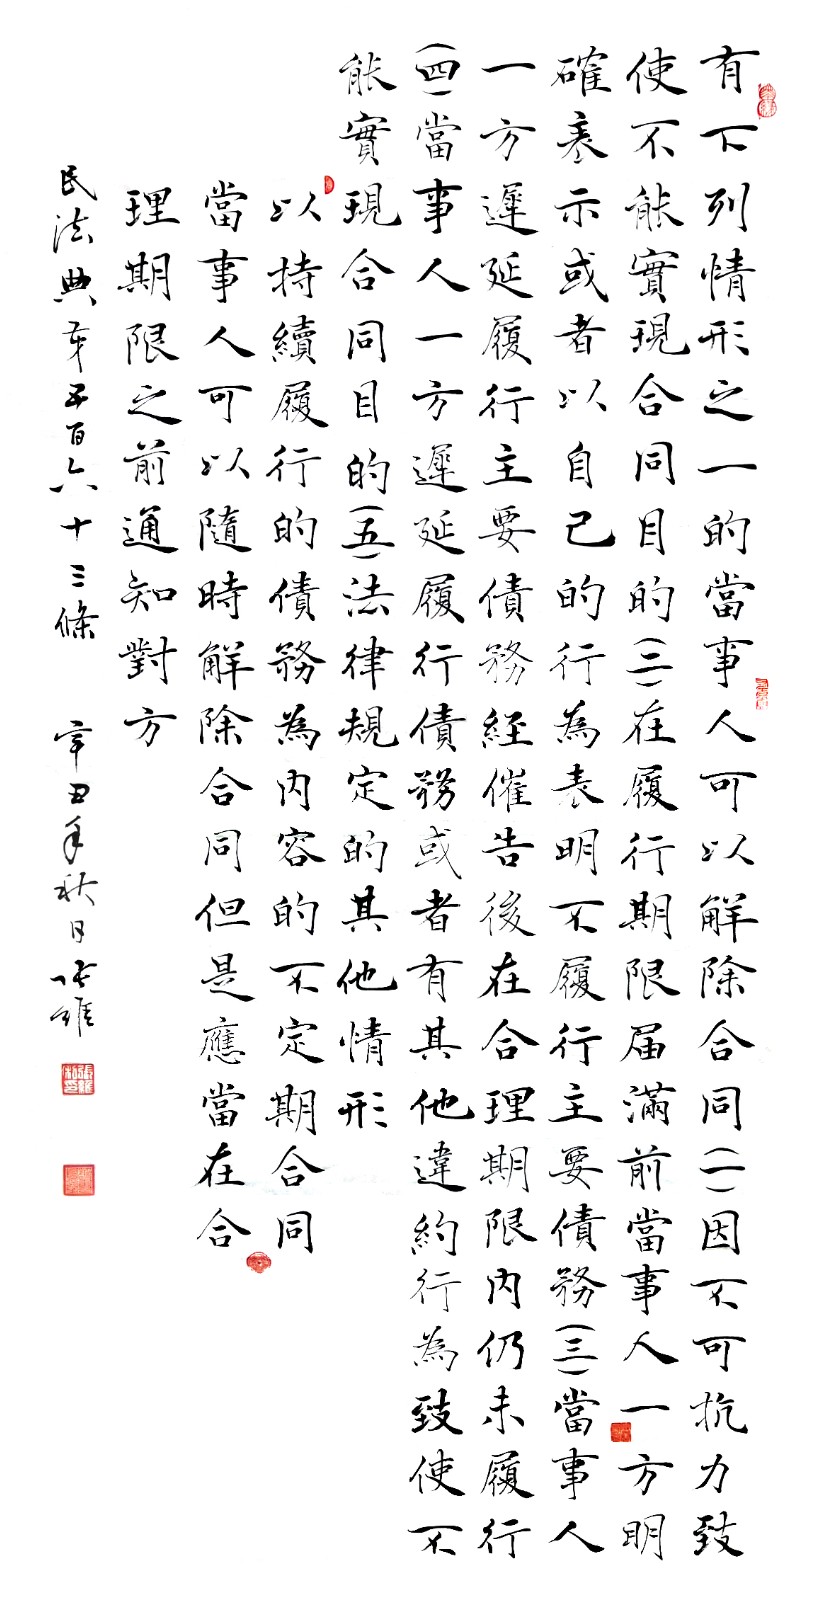 有下列情形之一的當事人可以解除合同(一)因不可抗力致
使不能實現合同目的(二)在履行期限届滿前當事人一方明
確表示或者以自己的行為表明不履行主要債務(三)當事人
一方遲延履行主要債務經催告後在合理期限内仍未履行
(四)當事人一方遲延履行債務或者有其他違約行為致使不
能實現合同目的(五)法律規定的其他情形
以持續履行的債務為内容的不定期合同
當事人可以隨時解除合同但是應當在合
理期限之前通知對方
民法典第五百六十三條 辛丑年秋日